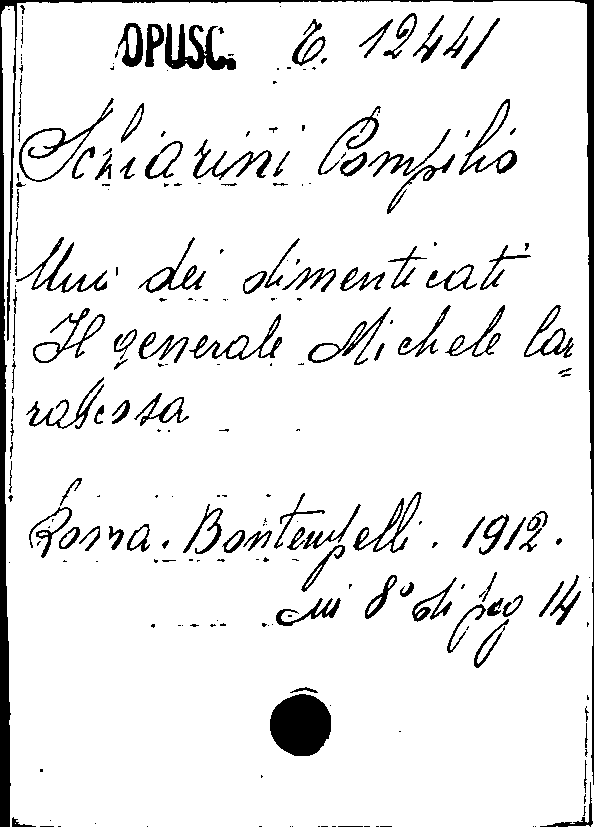 OPUSC. E. 12441
Schiarini Pompilio
Uno dei dimenticati
Il generale Michele Car=
rascosa
Roma. Bontempelli. 1912.
in 8° di pag 14